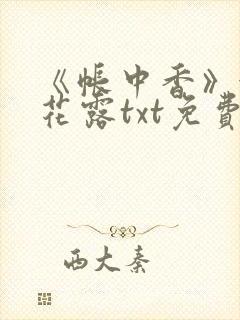 《帐中香》
花露txt免費
西大秦